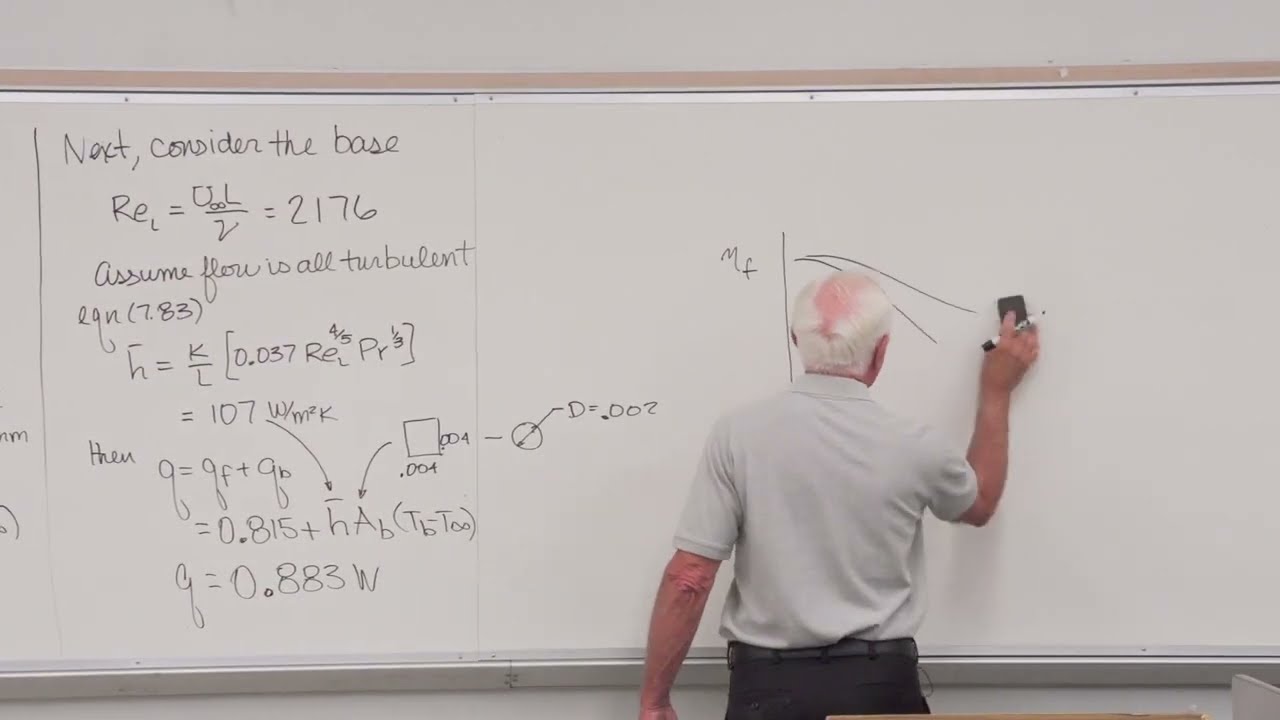 Next, consider the base
Re_L = U∞L/ν = 2176
Assume flow is all turbulent
eqn (7.83)
h̄ = K/L [0.037 Re_L^4/5 Pr^1/3]
= 107 W/m²K
.004
.004
D=.002
nm
then
q = q_f + q_b
= 0.815 + h̄ A_b (T_b - T∞)
q = 0.883 W
η_f